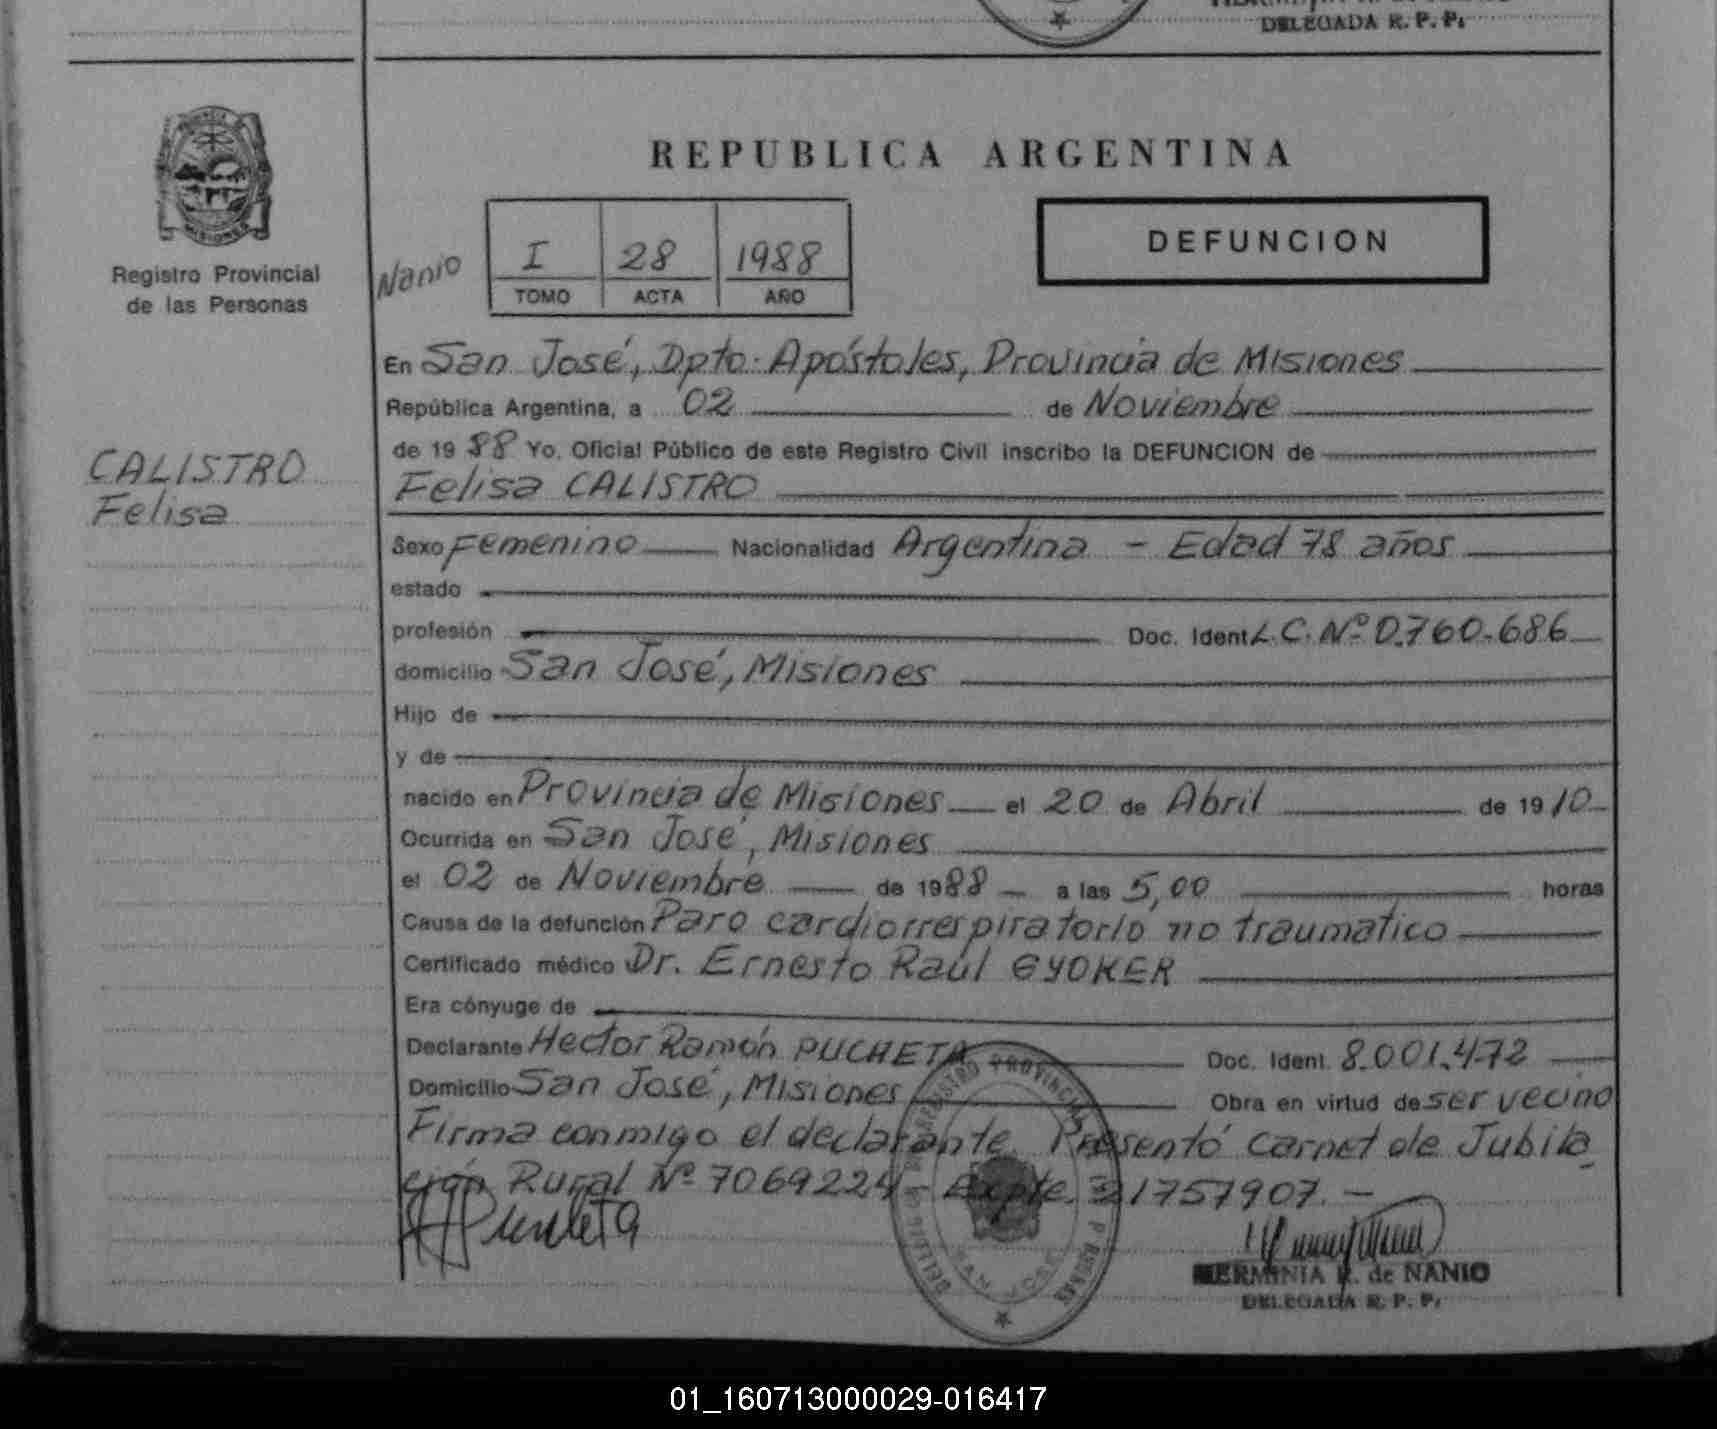 DELEGADA R. P. P.
REPUBLICA ARGENTINA
PROVINCIA
MISIONES
Registro Provincial
de las Personas
Nanio
I 28 1988
TOMO ACTA AÑO
DEFUNCION
En San José, Dpto. Apóstoles, Provincia de Misiones
República Argentina, a 02 de Noviembre
de 1988 Yo. Oficial Público de este Registro Civil inscribo la DEFUNCION de
CALISTRO
Felisa
Felisa CALISTRO
Sexo Femenino Nacionalidad Argentina - Edad 78 años
estado
profesión Doc. Ident. L.C. Nº 0.760.686
domicilio San José, Misiones
Hijo de
y de
nacido en Provincia de Misiones el 20 de Abril de 1910
Ocurrida en San José, Misiones
el 02 de Noviembre de 1988 a las 5,00 horas
Causa de la defunción Paro cardiorrespiratorio no traumatico
Certificado médico Dr. Ernesto Raúl GYOKER
Era cónyuge de
Declarante Hector Ramón PUCHETA Doc. Ident. 8.001.472
Domicilio San José, Misiones Obra en virtud de ser vecino
Firma conmigo el declarante. Presentó carnet de Jubila
ción Rural Nº 7069224 - Expte. 21757907. -
Pucheta
REGISTRO PROVINCIAL
SAN JOSE
HERMINIA K. de NANIO
DELEGADA R. P. P.
01_160713000029-016417